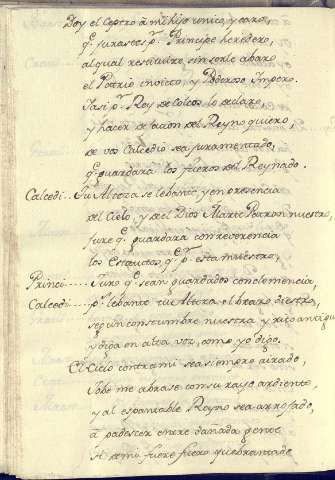 Doy el Ceptro á mi hijo unico, y caro,
q.e jurasteis p.r Principe heredero,
al qual restituiro, sin serle abaro
el Patrio invicto, y Poderoso Impero.
Y asi p.r Rey de Colcos lo declaro,
y hacer del Reyno quiero,
de vos Calcedio sea juramentado,
q.e guardara los fueros del Reynado.
Calcedi.. Tu Alteza se lebante, y en presencia
del Cielo, y del Dios Marte Patron nuestro,
jure q.e guardara con reverencia
los Estatutos, q.e p.r esta muestro,
Princi.... Juro q.e sean guardados con clemencia,
Calcedi.... p.s lebante tu Alteza el brazo diestro,
segun constumbre nuestra y rito antiguo
y diga en alta voz, como yo digo.
El Cielo contra mi sea siempre airado,
Jobe me abrase con su rayo ardiente,
y al espantable Reyno sea arrojado,
á padescer entre dañada gente
si p.r mi fuere fuero quebrantado